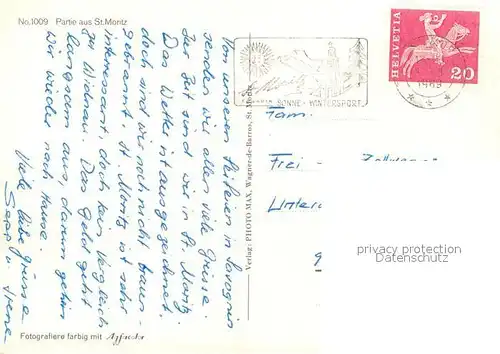 No.1009 Partie aus St.Moritz
Von unseren Skiferien in Savognin
senden wir alles viele Grüsse.
Zur Zeit sind wir in St. Moritz.
Das Wetter ist ausgezeichnet
doch sind wir noch nicht braun-
gebrannt. St. Moritz ist sehr
interessant, doch kein Vergleich
zu Widnau. Das Geld geht
langsam aus, darum gehen
wir wieder nach Hause.
Viele liebe Grüsse
Sepp u. Irene
Fotografiere farbig mit Agfacolor
Verlag: PHOTO MAX, Wagner-de-Barros, St. Moritz
St. Moritz
SONNE - WINTERSPORT
HELVETIA
20
1969
Fam.
Frei -
Unter
9
privacy protection
Datenschutz